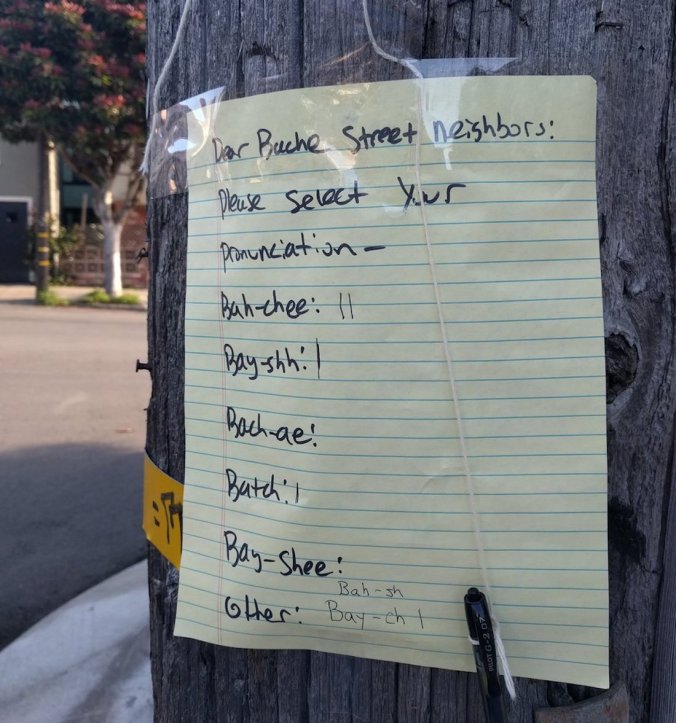 Dear Bache Street neighbors:
Please select your
pronunciation –
Bah-chee: ||
Bay-shh: |
Bach-ae:
Batch: |
Bay-Shee:
Bah-sh
Other: Bay-ch |
PILOT G-2 07